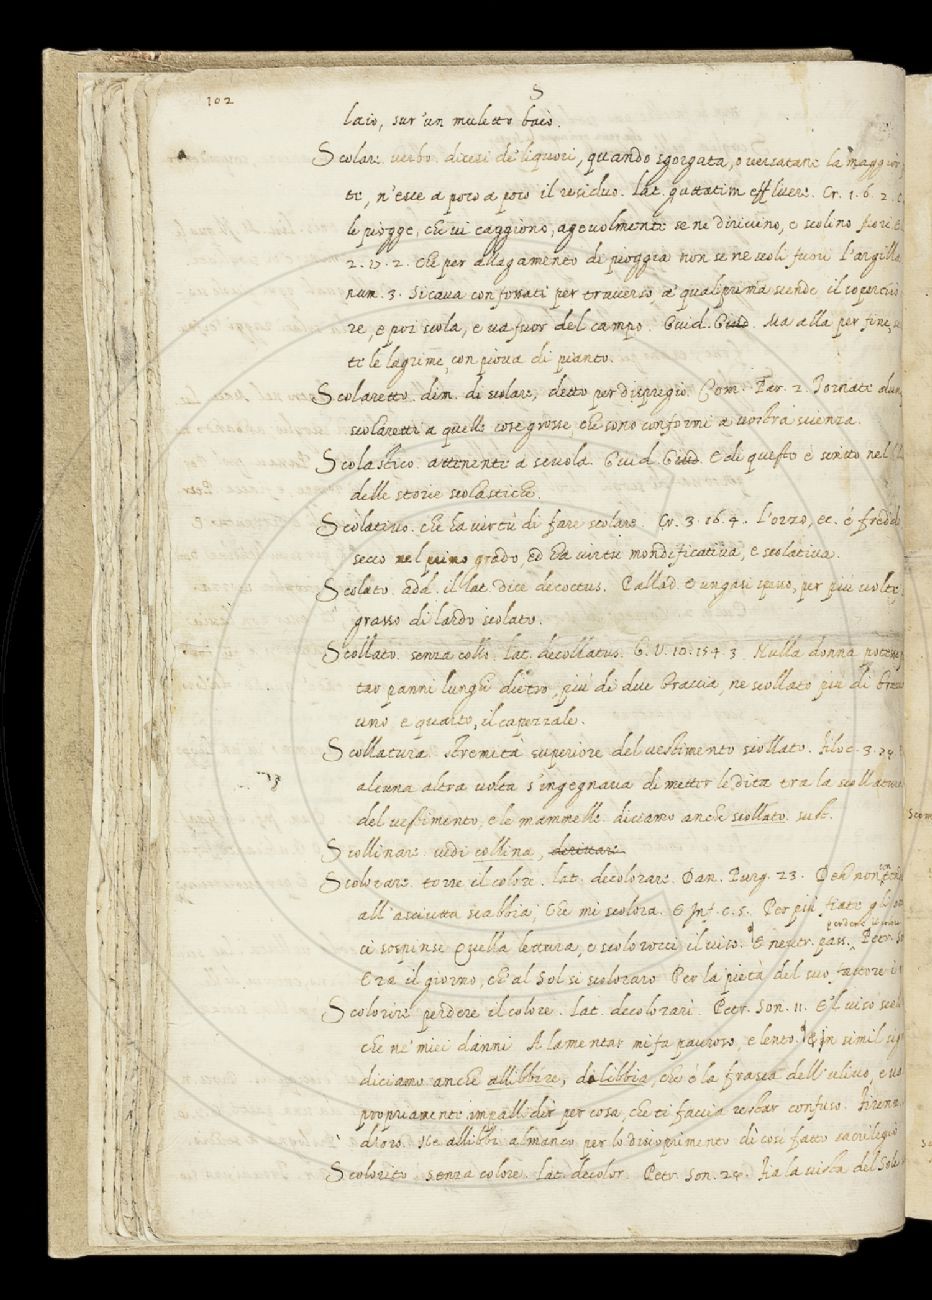 102
S
laio, sur'un muletto baio.
Scolare. verbo. dicesi de' liquori, quando sgorgata, o versatane la maggior
te, n'esce a poco a poco il residuo. lat. guttatim effluere. Cr. 1. 6. 2.
le piogge, che vi caggiono, agevolmente se ne dirivino, e scolino fuori. E
2. 17. 2. Che per allagamento di pioggia non se ne scoli fuori l'argilla
num. 3. Si cava con fossati per traverso, a' quali prima scende il
re, e poi scola, e va fuor del campo. Guid. Giud. Ma alla per fine,
te le lagrime, con piova di pianto.
Scolaretto. dim. di scolare, detto per dispregio. Com. Par. 2. Tornate
scolaretti a quelle cose grosse, che sono conformi a vostra scienza.
Scolastico. attenente a scuola. Guid. Giud. E di questo è scritto nel
delle storie scolastiche.
Scolativo. che ha virtù di fare scolare. Cr. 3. 16. 4. L'orzo, ec. è freddo
secco nel primo grado, ed ha virtù mondificativa, e scolativa.
Scolato. add. il lat. dice decoctus. Pallad. E ungasi spesso, per più volte,
grasso di lardo scolato.
Scollato. senza collo. lat. decollatus. G. V. 10. 154. 3. Nulla donna potesse
tar panni lunghi dietro, più di due braccia, ne scollato più di braccia
uno, e quarto, il capezzale.
Scollatura. stremità superiore del vestimento scollato. filoc. 3.
alcuna altra volta s'ingegnava di metter le dita tra la scollatura
del vestimento, e le mammelle. diciamo anche scollato. sust.
Scollinare. vedi collina,
Scolorare. torre il colore. lat. decolorare. Dan. Purg. 23. Deh non
all'asciutta scabbia, che mi scolora. E Inf. c. 5. Per più fiate gli
perdere il colore
ci sospinse Quella lettura, e scolorocci il viso. E neutr. pass. Petr. So
Era il giorno, ch'al Sol si scoloraro Per la pietà del suo fattore i
Scolorire. perdere il colore. lat. decolorari. Petr. Son. 11. E'l viso
che ne' miei danni A lamentar mi fa pauroso, e lento. E in simil sig
diciamo anche allibbire, da libbia, che è la frasca dell'ulivo, e
propriamente impallidir per cosa, che ti faccia restar confuso. firenz.
d'oro. Ne allibbì almanco per lo discoprimento di così fatto sacrilegio
Scolorito. senza colore. lat. decolor. Petr. Son. 28. fia la vista del Sole